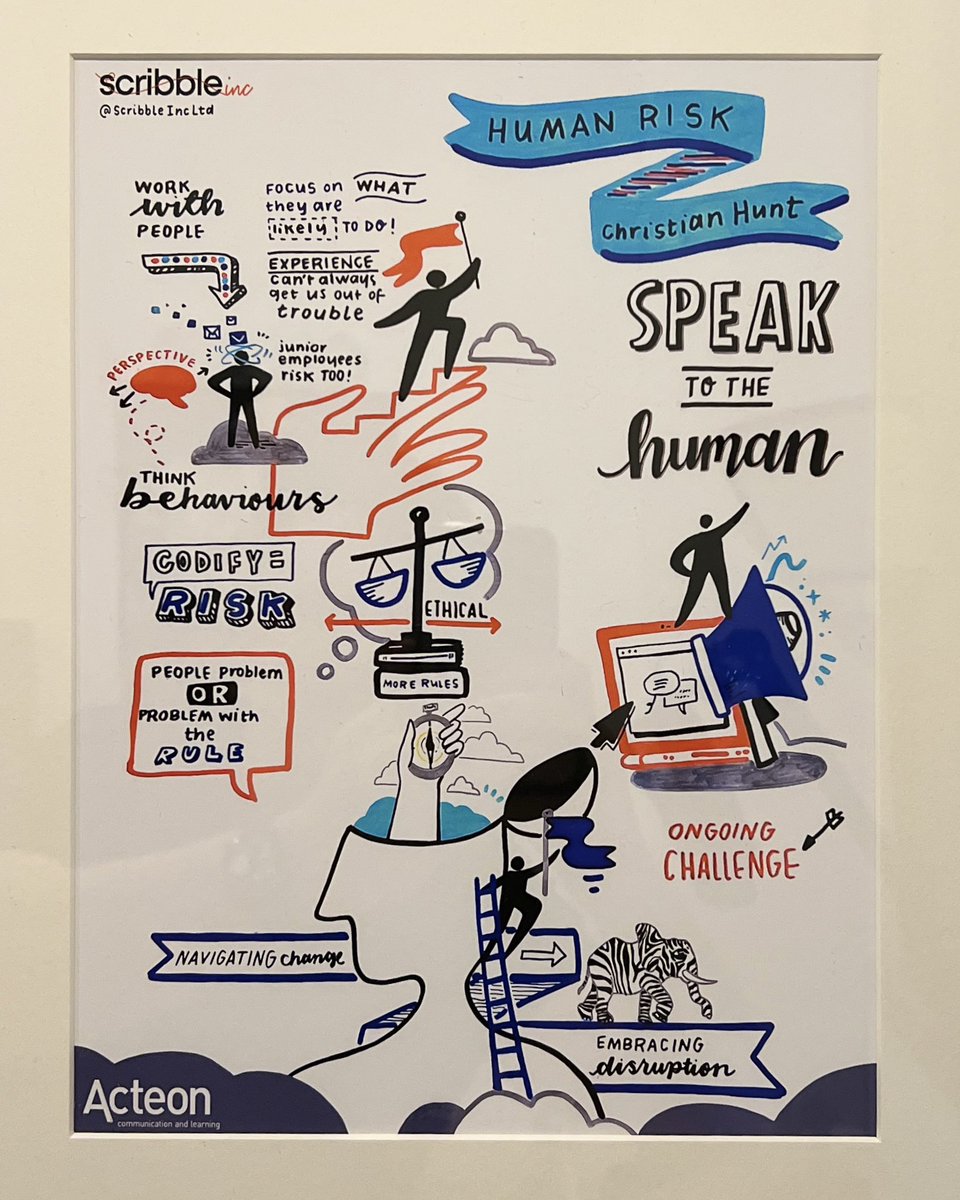 scribble inc
@ScribbleIncLtd
HUMAN RISK
Christian Hunt
WORK
with
PEOPLE
FOCUS on WHAT
they are
likely TO DO!
EXPERIENCE
can't always
get us out of
trouble
PERSPECTIVE
junior
employees
risk TOO!
THINK
behaviours
SPEAK
TO THE
human
CODIFY =
RISK
ETHICAL
MORE RULES
PEOPLE Problem
OR
PROBLEM with
the
RULE
ONGOING
CHALLENGE
NAVIGATING change
EMBRACING
disruption
Acteon
communication and learning